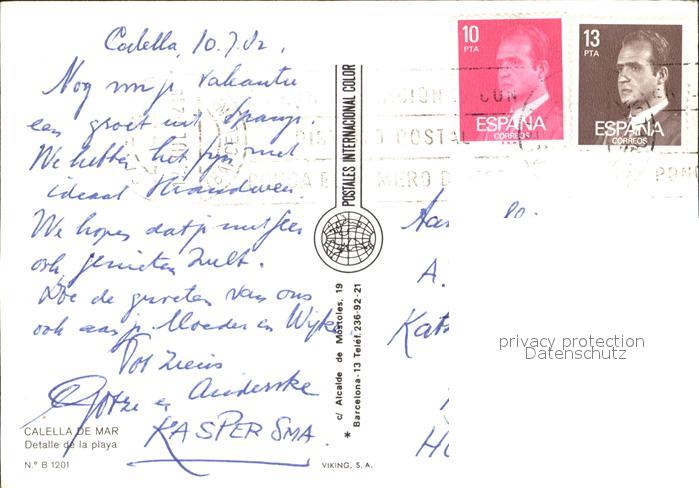 Calella, 10.7.82.
Nog van je vakantie
een groet uit Spanje.
We hebben het fijn met
ideaal strandweer.
We hopen dat je
ook genieten zult.
Doe de groeten van ons
ook aan je Moeder en
Tot ziens
en
KASPERSMA.
CALELLA DE MAR
Detalle de la playa
N.º B 1201
VIKING, S. A.
POSTALES INTERNACIONAL COLOR
c/ Alcalde de Móstoles, 19
* Barcelona-13 Teléf. 236-92-21
10
PTA
ESPAÑA
CORREOS
13
PTA
ESPAÑA
CORREOS
CON
POSTAL
Aan
A.
Kat
H
privacy protection
Datenschutz